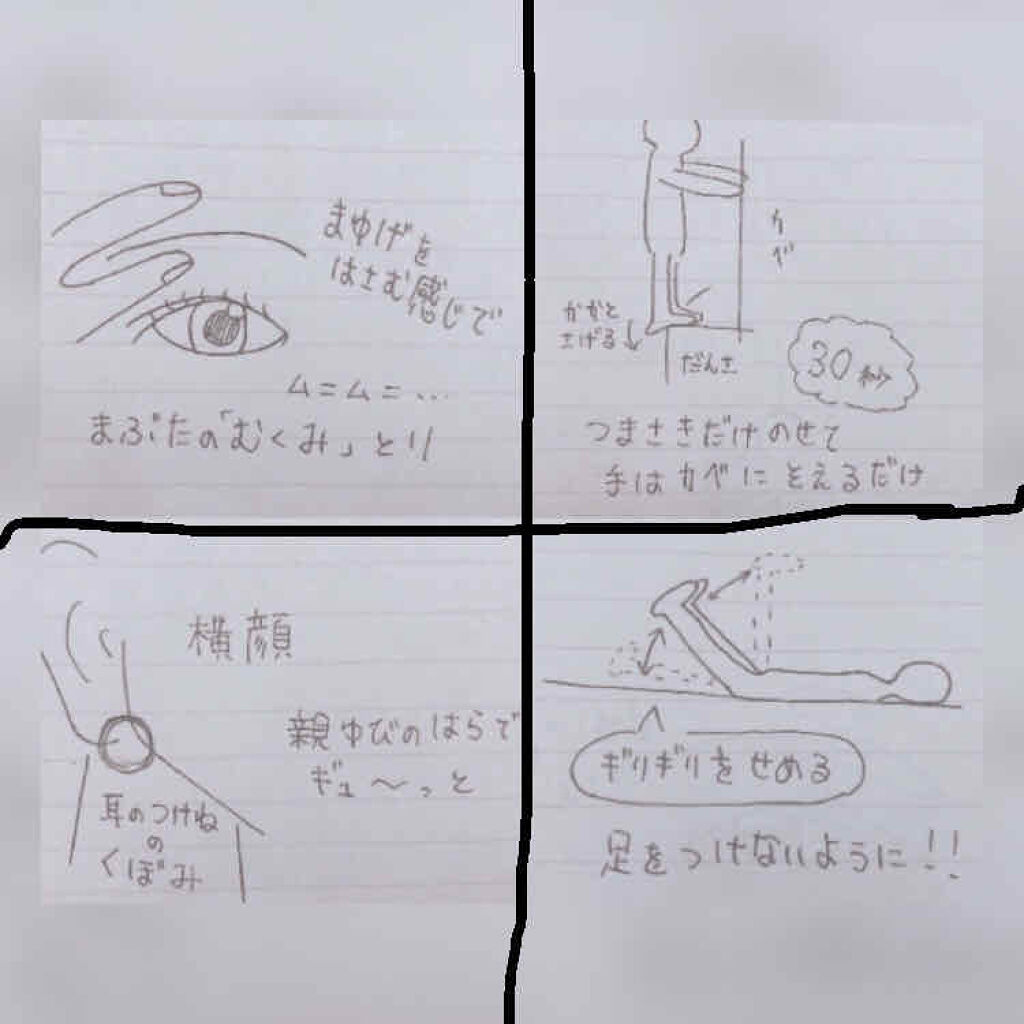 まゆげを
はさむ感じで
ムニムニ…
まぶたの「むくみ」とり
カベ
かかと
さげる
だんさ
30秒
つまさきだけのせて
手はカベにそえるだけ
横顔
親ゆびのはらで
ギュ〜っと
耳のつけね
の
くぼみ
ギリギリをせめる
足をつけないように!!